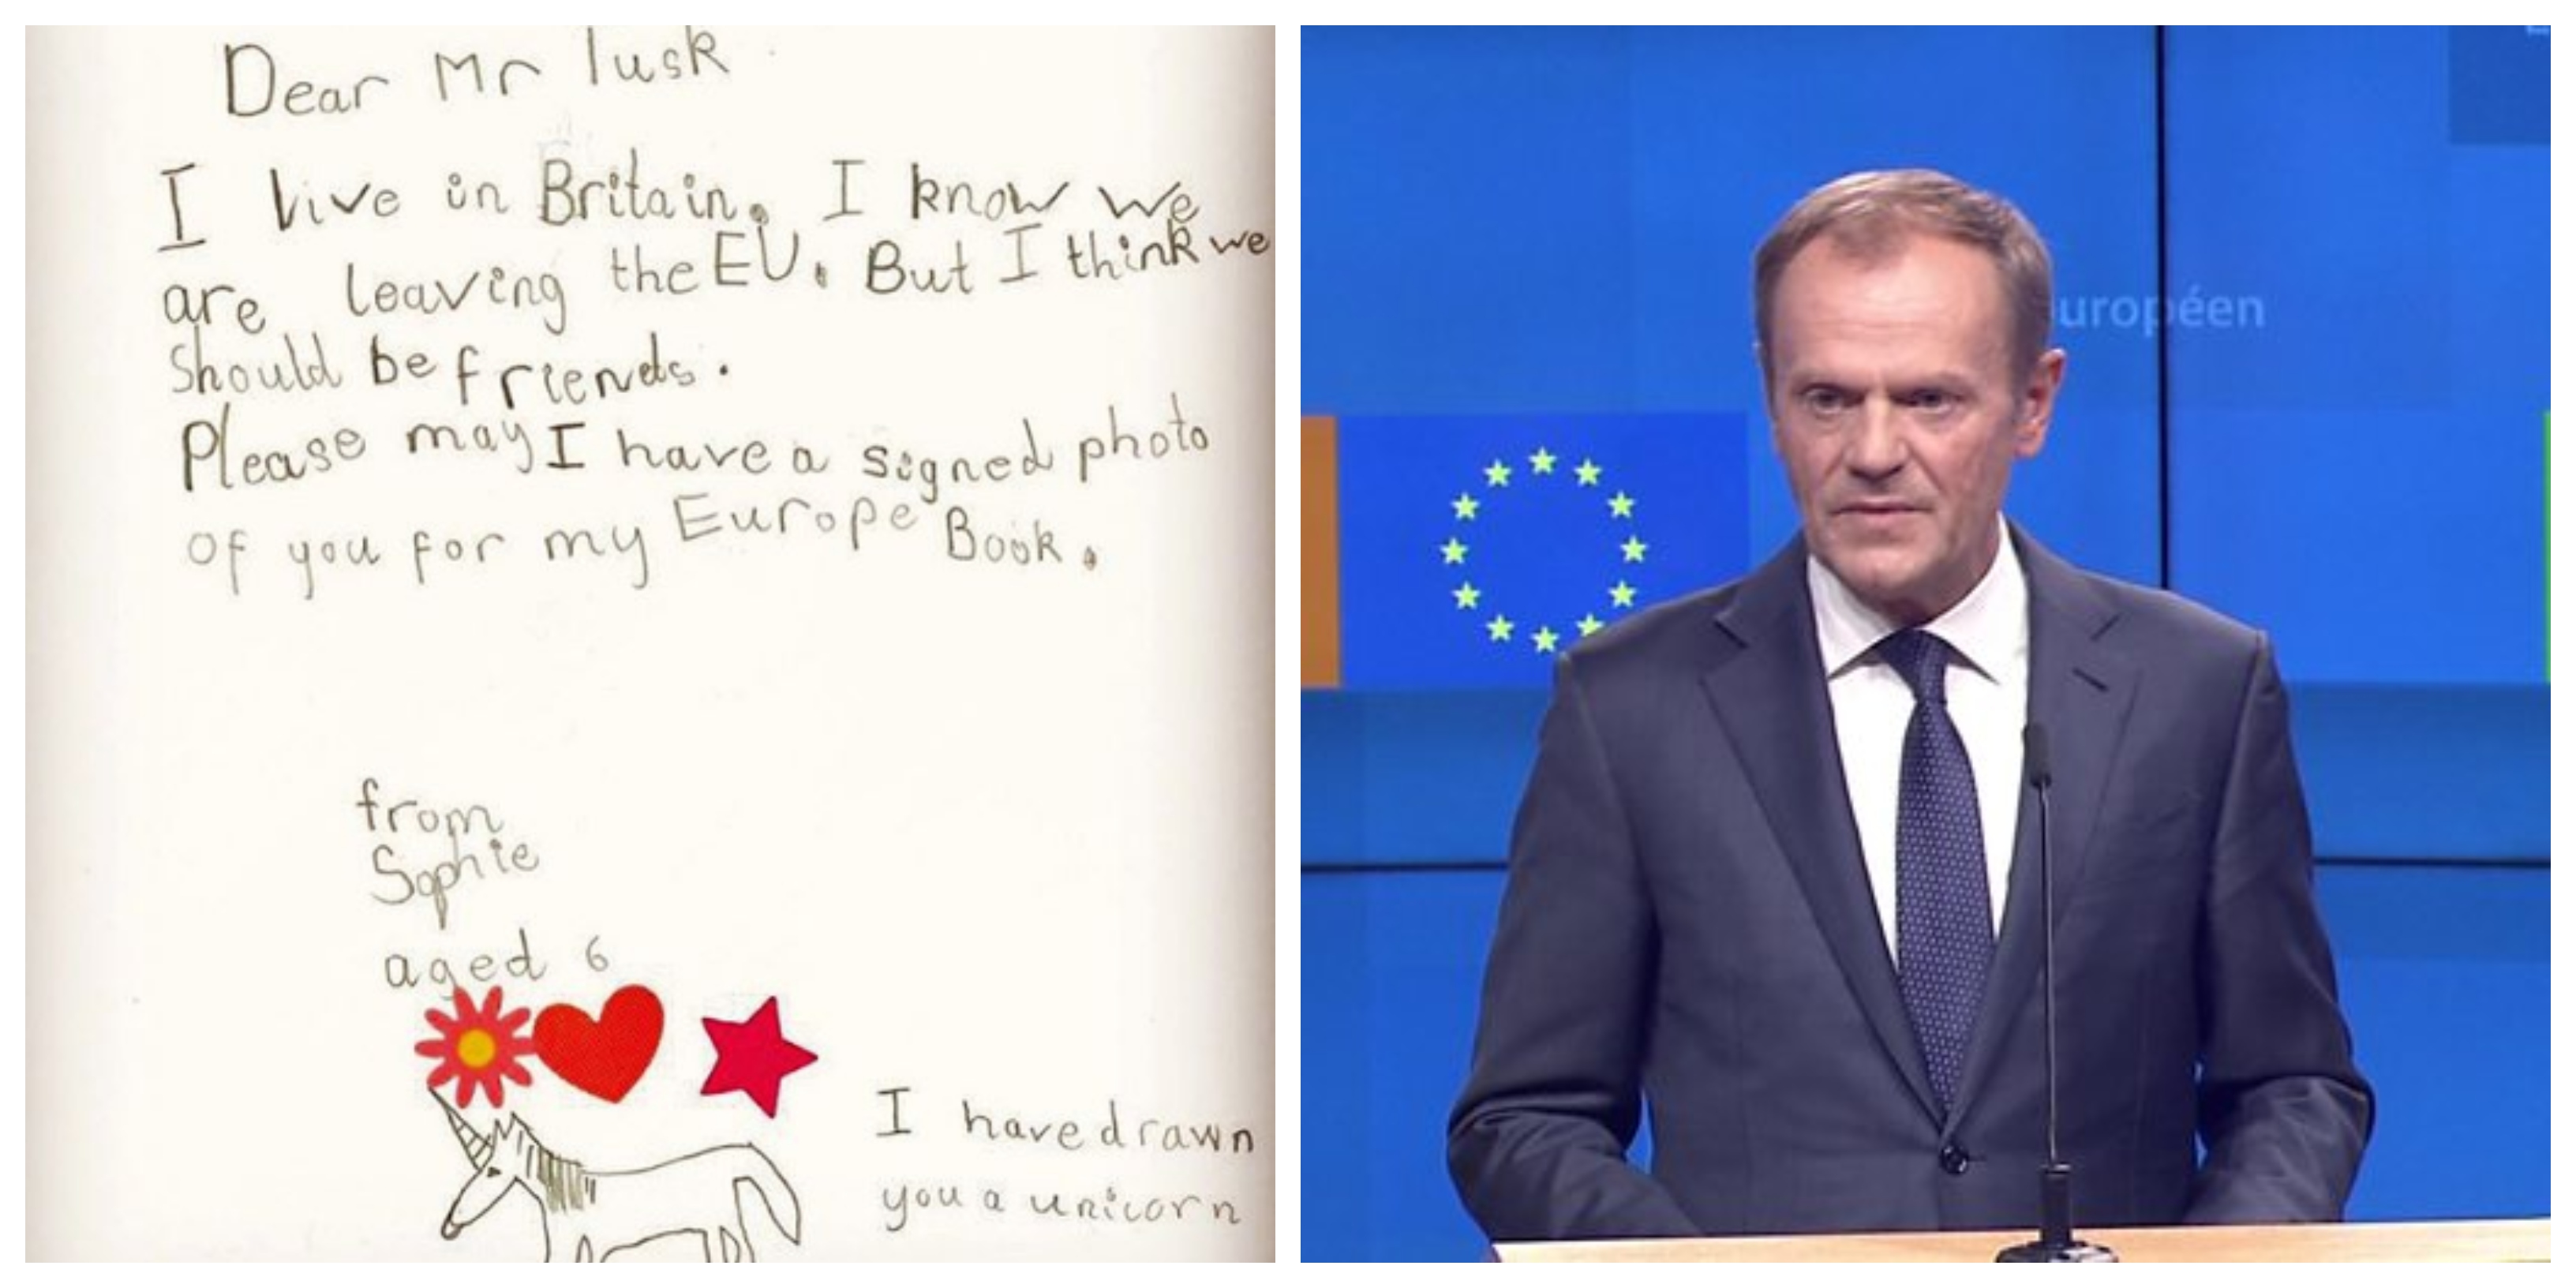 Dear Mr Tusk
I live in Britain. I know we
are leaving the EU. But I think we
should be friends.
Please may I have a signed photo
of you for my Europe Book.
from
Sophie
aged 6
I have drawn
you a unicorn
uropéen